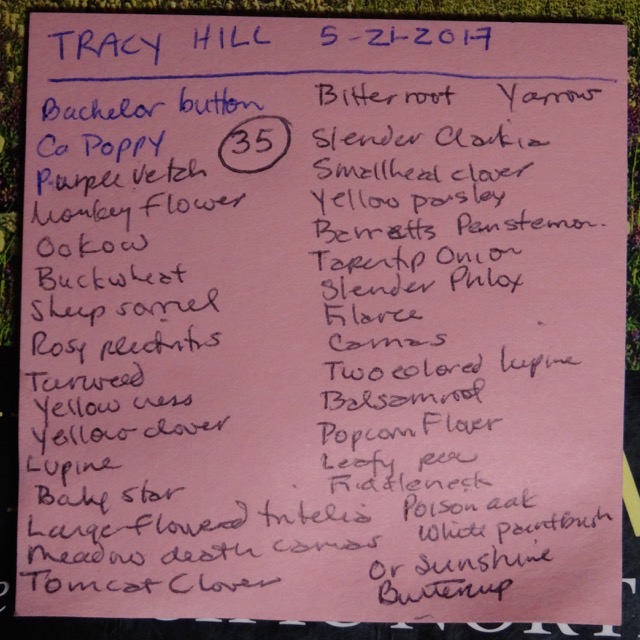 TRACY HILL 5-21-2017
Bachelor button
Ca Poppy
35
Purple Vetch
Monkey Flower
Ookow
Buckwheat
Sheep sorrel
Rosy plectritis
Tarweed
Yellow cress
Yellow clover
Lupine
Baby star
Large flowered triteleia
Meadow death camas
Tomcat Clover
Bitterroot Yarrow
Slender Clarkia
Smallhead clover
Yellow parsley
Barretts Penstemon
Tapertip Onion
Slender Phlox
Filaree
Camas
Two colored lupine
Balsamroot
Popcorn Flower
Leafy pea
Fiddleneck
Poison oak
White paintbrush
Or sunshine
Buttercup